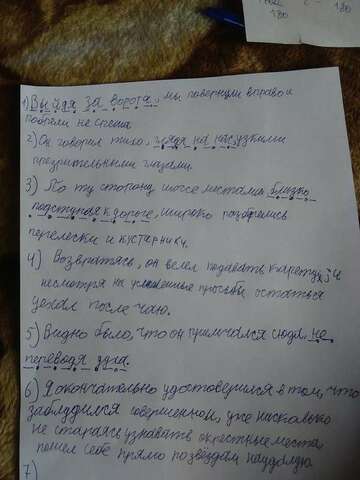 180
180
1) Выйдя за ворота, мы повернули вправо и
побрели не спеша
2) Он говорил тихо, глядя на нас, узкими
презрительными глазами.
3) По ту сторону шоссе местами близко
подступая к дороге, широко разбрелись
перелески и кустарники.
4) Возвратясь, он велел подавать карету, и
несмотря на усиленные просьбы остаться
уехал после чаю.
5) Видно было, что он примчался сюда, не
переводя духа.
6) Я окончательно удостоверился в том, что
заблудился совершенно, уже насколько
не стараясь узнавать окрестные места,
пошел себе прямо по звездам, наудалую.
7)